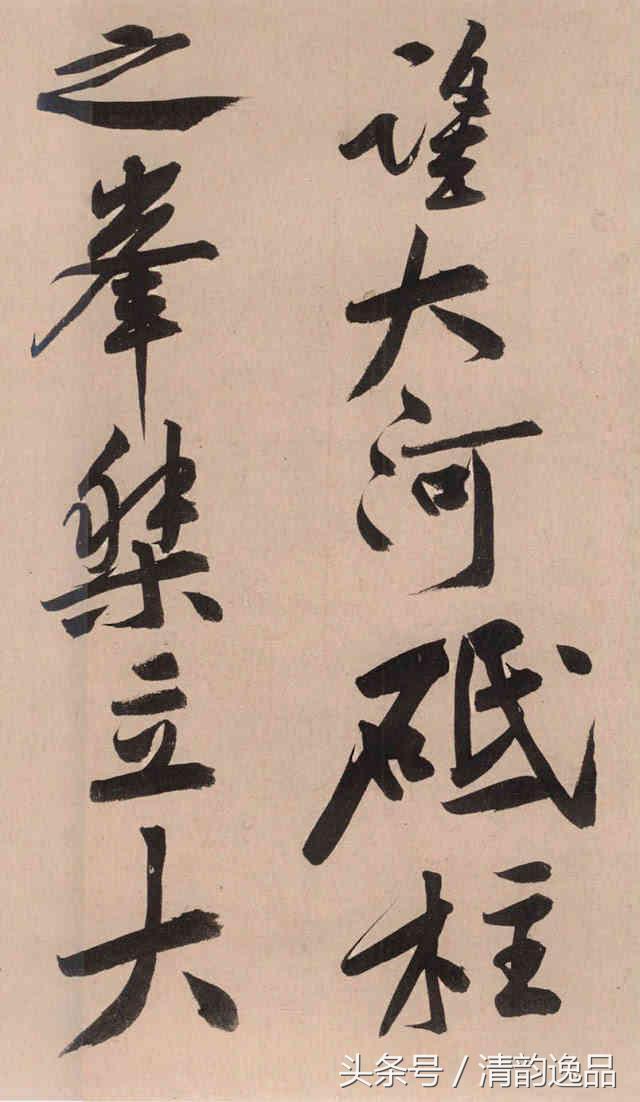 望大河砥柱
之峯桀立大
头条号 / 清韵逸品